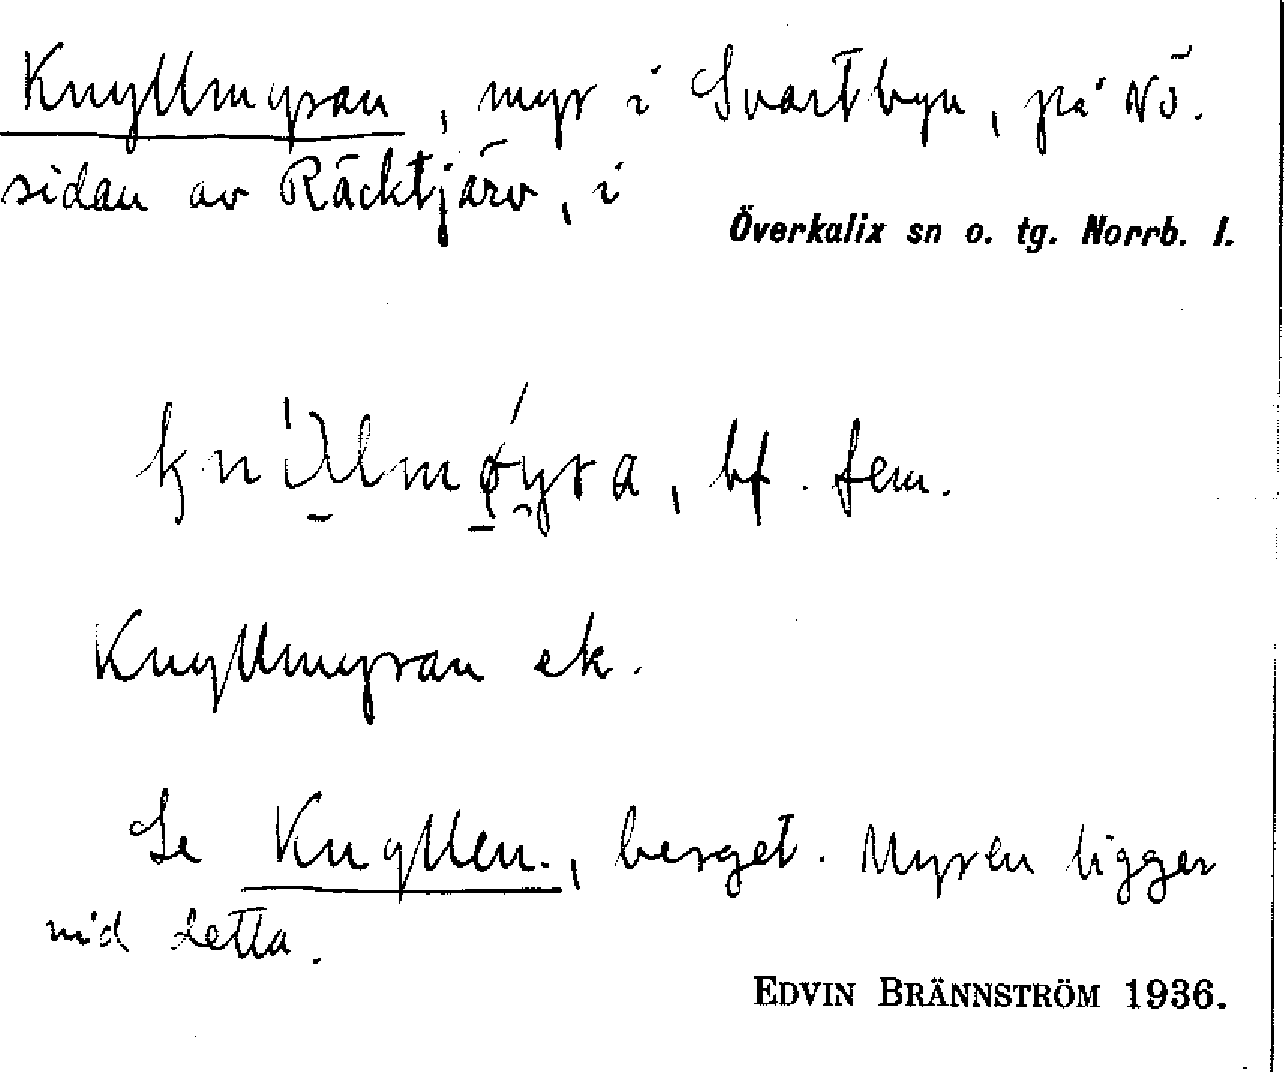 Knyllmyran, myr i Svartbyn, på nö.
sidan av Räcktjärv, i
Överkalix sn o. tg. Norrb. l.
bf. fem.
Knyllmyran ek.
Se Knyllen., berget. Myren ligger
vid detta.
EDVIN BRÄNNSTRÖM 1936.